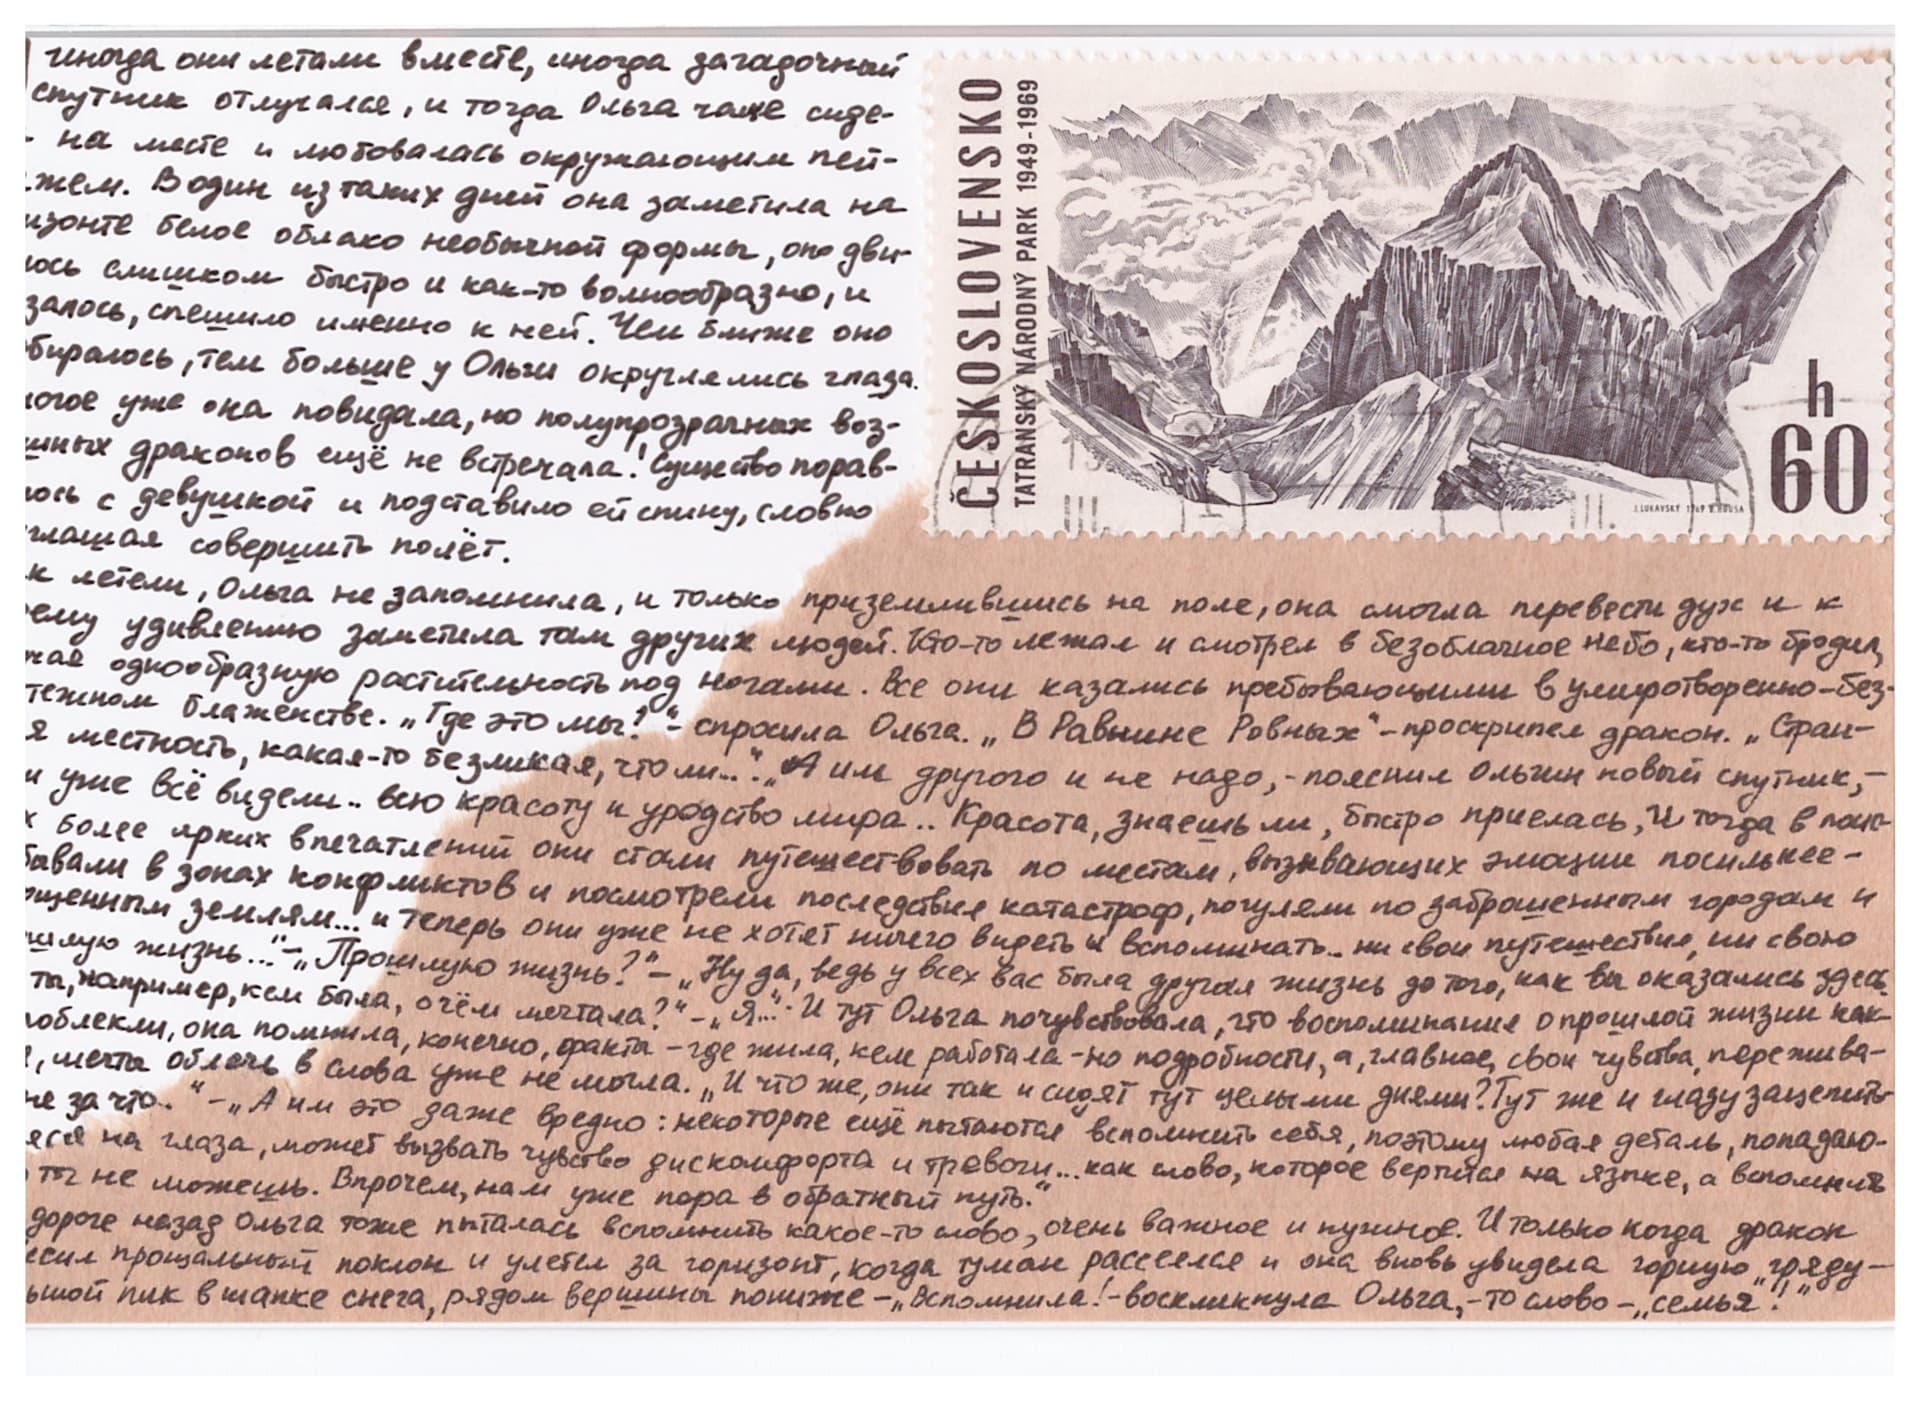 иногда они летали вместе, иногда загадочный
спутник отлучался, и тогда Ольга чаще сиде-
на месте и любовалась окружающим пей-
жем. В один из таких дней она заметила на
изонте белое облако необычной формы, оно дви-
лось слишком быстро и как-то волнообразно, и
залось, спешило именно к ней. Чем ближе оно
биралось, тем больше у Ольги округлялись глаза.
ногое уже она повидала, но полупрозрачных воз-
шных драконов ещё не встречала! Существо порав-
лось с девушкой и подставило ей спину, словно
глашая совершить полёт.
к летели, Ольга не запомнила, и только приземлившись на поле, она смогла перевести дух и к
оему удивлению заметила там других людей. Кто-то лежал и смотрел в безоблачное небо, кто-то бродил,
чая однообразную растительность под ногами. Все они казались пребывающими в умиротворенно-без-
тежном блаженстве. „Где это мы?“ - спросила Ольга. „В Равнине Ровных“ - проскрипел дракон. „Стран-
я местность, какая-то безликая, что ли...“ „А им другого и не надо, - пояснил Ольгин новый спутник, -
и уже всё видели.. всю красоту и уродство мира.. Красота, знаешь ли, быстро приелась, И тогда в поис-
х более ярких впечатлений они стали путешествовать по местам, вызывающих эмоции посильнее -
бывали в зонах конфликтов и посмотрели последствия катастроф, погуляли по заброшенным городам и
ощенным землям... и теперь они уже не хотят ничего видеть и вспоминать.. ни свои путешествия, ни свою
шлую жизнь...“ - „Прошлую жизнь?“ - „Ну да, ведь у всех вас была другая жизнь до того, как вы оказались здесь.
ты, например, кем была, о чём мечтала?“ - „Я...“ И тут Ольга почувствовала, что воспоминания о прошлой жизни как-
поблекли, она помнила, конечно, факты - где жила, кем работала - но подробности, а, главное, свои чувства, пережива-
, мечты облечь в слова уже не могла. „И что же, они так и сидят тут целыми днями? Тут же и глазу зацепить-
не за что..“ - „А им это даже вредно: некоторые ещё пытаются вспомнить себя, поэтому любая деталь, попадаю-
яся на глаза, может вызвать чувство дискомфорта и тревоги... как слово, которое вертится на языке, а вспомнить
ты не можешь. Впрочем, нам уже пора в обратный путь.“
дороге назад Ольга тоже пыталась вспомнить какое-то слово, очень важное и нужное. И только когда дракон
есил прощальный поклон и улетел за горизонт, когда туман рассеялся и она вновь увидела горную гряду -
ьшой пик в шапке снега, рядом вершины пониже - „Вспомнила! - воскликнула Ольга, - то слово - „семья“!“
ČESKOSLOVENSKO
TATRANSKÝ NÁRODNÝ PARK 1949-1969
h
60
J. LUKAVSKÝ 1969 B. HOUSA